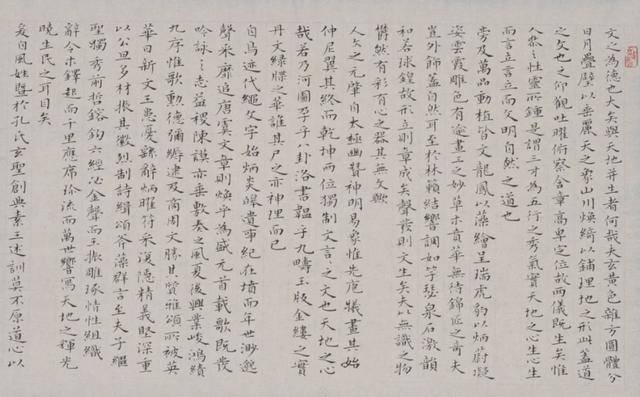 文之為德也大矣與天地並生者何哉夫玄黃色雜方圓體分
日月疊璧以垂麗天之象山川煥綺以鋪理地之形此蓋道
之文也仰觀吐曜俯察含章高卑定位故兩儀既生矣惟
人叅之性靈所鍾是謂三才為五行之秀氣實天地之心心生
而言立言立而文明自然之道也
旁及萬品動植皆文龍鳳以藻繪呈瑞虎豹以炳蔚凝
姿雲霞雕色有逾畫工之妙草木賁華無待錦匠之奇夫
豈外飾蓋自然耳至於林籟結響調如竽瑟泉石激韻
和若球鍠故形立則章成矣聲發則文生矣夫以無識之物
鬱然有彩有心之器其無文歟
人文之元肇自太極幽贊神明易象惟先庖犧畫其始
仲尼翼其終而乾坤兩位獨制文言言之文也天地之心
哉若乃河圖孕乎八卦洛書韞乎九疇玉版金鏤之實
丹文綠牒之華誰其尸之亦神理而已
自鳥迹代繩文字始炳炎皞遺事紀在墳而年世渺邈
聲采靡追唐虞文章則煥乎為盛元首載歌既發
吟詠之志益稷陳謨亦垂敷奏之風夏後興業峻鴻績
九序惟歌勳德彌縟逮及商周文勝其質雅頌所被英
華日新文王患憂繇辭炳曜符采複隱精義堅深重
以公旦多材振其徽烈制詩緝頌斧藻群言至夫子繼
聖獨秀前哲鎔鈞六經必金聲而玉振雕琢情性組織
辭令木鐸起而千里應席珍流而萬世響寫天地之輝光
曉生民之耳目矣
爰自風姓暨於孔氏玄聖創典素王述訓莫不原道心以